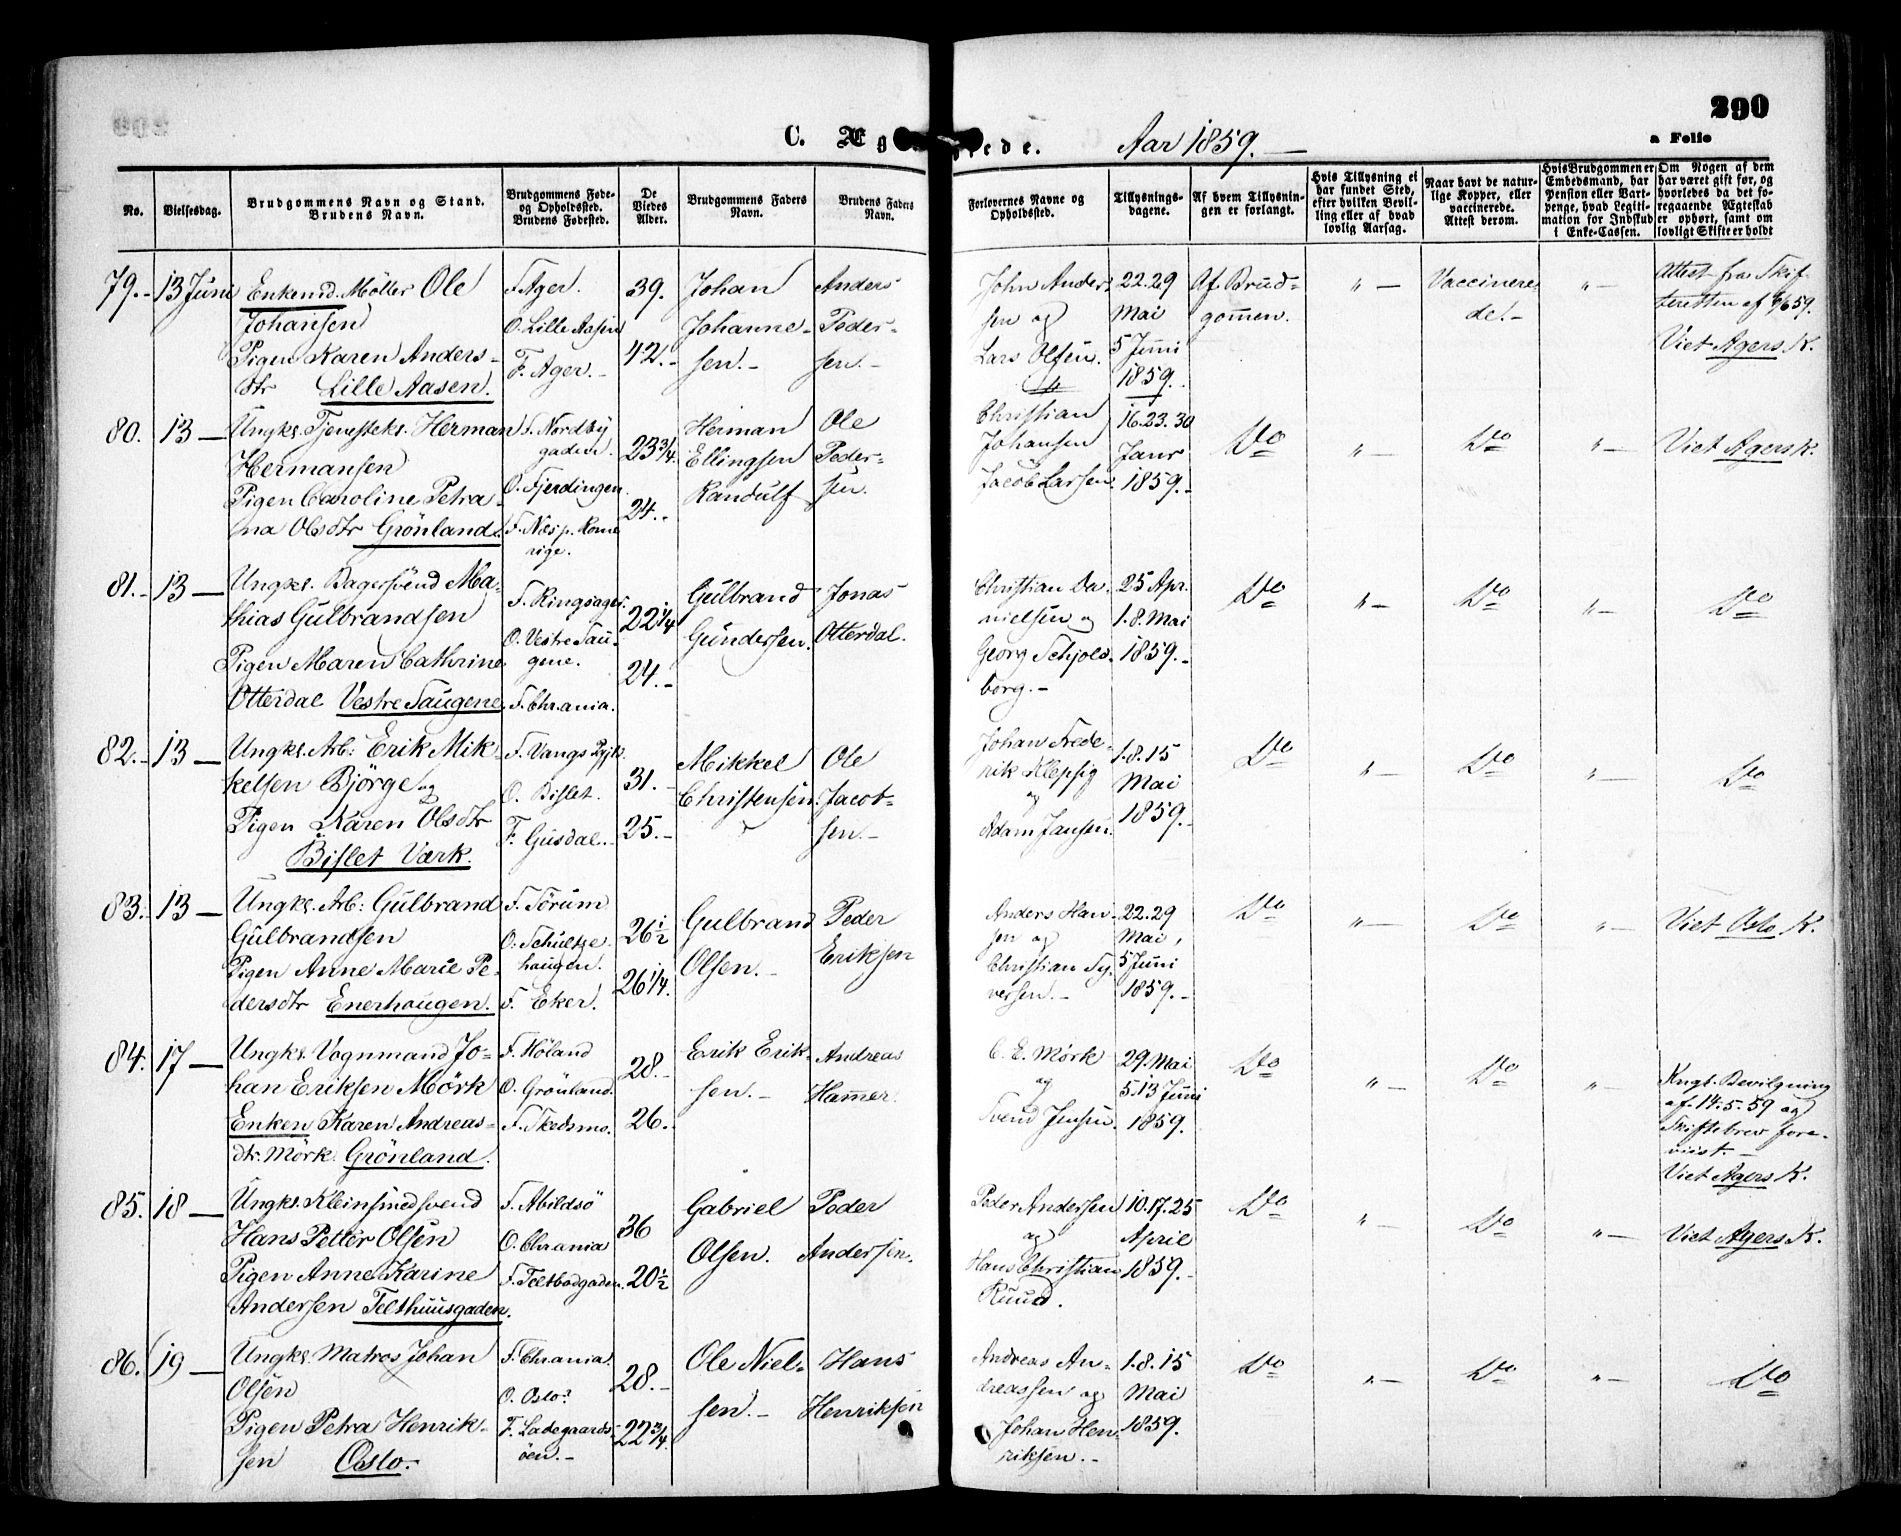 290
C. Æg
ede.
Aar 1859.-
a Folio
No.
Vielsesdag.
Brudgommens Navn og Stand.
Brudens Navn.
Brudgommens Føde-
og Opholdssted.
Brudens Fødested.
De
Viedes
Alder.
Brudgommens Faders
Navn.
Brudens Faders
Navn.
Forlovernes Navne og
Opholdssted.
Tillysnings-
dagene.
Af hvem Tillysnin-
gen er forlangt.
Hvis Tillysning ei
har fundet Sted,
efter hvilken Bevil-
ling eller af hvad
lovlig Aarsag.
Naar havt de natur-
lige Kopper, eller
vaccinerede.
Attest derom.
Hvis Brudgommen er
Embedsmand, har
Pension eller Vart-
penge, hvad Legiti-
mation for Indskud
i Enke-Cassen.
Om Nogen af dem
har været gift før, og
hvorledes da det fo-
regaaende Ægteskab
er ophørt, samt om
lovligt Skifte er holdt
79.- 13 Juni
Enkemd. Möller Ole
Johansen
Pigen Karen Anders-
dtr Lille Aasen.
F. Ager.
O. Lille Aasen
F. Ager.-
39.
42.-
Johan
Johanne-
sen.-
Anders
Peder-
sen.-
John Ander-
sen og
Lars Olsen.
22.29
Mai
5 Juni
1859.
Af Brud-
gommen.
" -
Vaccinere-
de.-
" -
Attest fra Skif-
teretten af 9/6 59.
Viet Agers K.
80. 13 -
Ungkl. Tjenestekl. Herman
Hermansen
Pigen Caroline Petra-
na Olsdtr Grönland.
F. Nordby
gaden.
O. Fjerdingen.
F. Næs p. Rome
rige.
23 3/4.
24.-
Herman
Ellingsen
Randulf
Ole
Peder-
sen.
Christian
Johansen
Jacob Larsen.
16.23.30
Janr
1859.-
Do
" -
Do
" -
Viet Agers K.
81.- 13 -
Ungkl. Bagersvend Ma-
thias Gulbrandsen
Pigen Maren Cathrine
Otterdal Vestre Saugene
F. Ringsager.
O. Vestre Sau-
gene.
F. Chrania.
22 1/4
24.-
Gulbrand
Gundersen.
Jonas
Otterdal.
Christian Da-
nielsen og
Georg Schjols-
borg.-
25 Apr.
1.8. Mai
1859.-
Do
" -
Do
" -
Do
82.- 13 -
Ungkl. Arb: Erik Mik-
kelsen Bjørge og
Pigen Karen Olsdtr
Bislet Værk.
F. Vangs Pgjld.
O. Bislet.
F. Gusdal.-
31.-
25.-
Mikkel
Christensen.
Ole
Jacob-
sen.-
Johan Frede-
rik Klepsig
og
Adam Jansen.
1.8.15
Mai
1859.-
Do
" -
Do
" -
Do
83. 13 -
Ungkl. Arb: Gulbrand
Gulbrandsen
Pigen Anne Marie Pe-
dersdtr Enerhaugen.
F. Sörum
O. Schultze-
haugen.
F. Eker.
26 1/2
26 1/4.
Gulbrand
Olsen.-
Peder
Eriksen
Anders Han-
sen og
Christian Sy-
versen.-
22.29
Mai,
5 Juni
1859.-
Do
" -
Do
" -
Viet Oslo K.
84. 17 -
Ungkl. Vognmand Jo-
han Eriksen Mörk
Enken Karen Andreas-
dtr. Mörk. Grönland.
F. Höland
O. Grönland.
F. Skedsmo.
28.-
26.
Erik Erik-
sen.-
Andreas
Hammer.
C. E. Mörk
og
Svend Jensen.
29. Mai
5.13 Juni
1859.
Do
" -
Do
" -
Kngl. Bevilgning
af 14.5.59 og
Skiftebrev fore-
viist.-
Viet Agers K.
85. 18 -
Ungkl. Kleinsmedsvend
Hans Petter Olsen
Pigen Anne Karine
Andersen Telthuusgaden.
F. Abildsö
O. Chrania
F. Teltbodgaden.
36
20 1/2
Gabriel
Olsen.
Peder
Andersen.
Peder Andersen
og
Hans Christian
Ruud.
10.17.25
April
1859.-
Do
" -
Do
" -
Viet Agers K.
86. 19 -
Ungkl. Matros Johan
Olsen
Pigen Petra Henrik-
sen Oslo.-
F. Chrania.
O. Oslo.
F. Ladegaards-
öen.-
28.-
22 3/4
Ole Niel-
sen.-
Hans
Henriksen
Andreas An-
dreassen og
Johan Hen-
riksen.-
1.8.15
Mai
1859.
Do
" -
Do
" -
Do